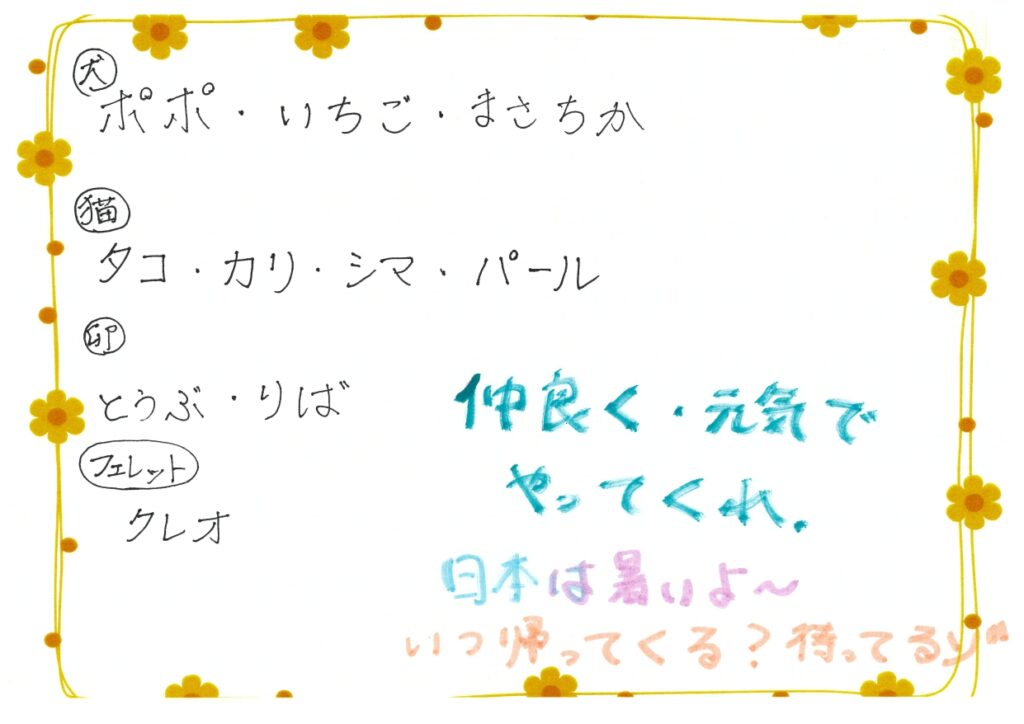 犬
ポポ・いちご・まさちか
猫
タコ・カリ・シマ・パール
卯
とうぶ・りば
フェレット
クレオ
仲良く・元気で
やってくれ.
日本は暑いよ〜
いつ帰ってくる？待ってるゾ